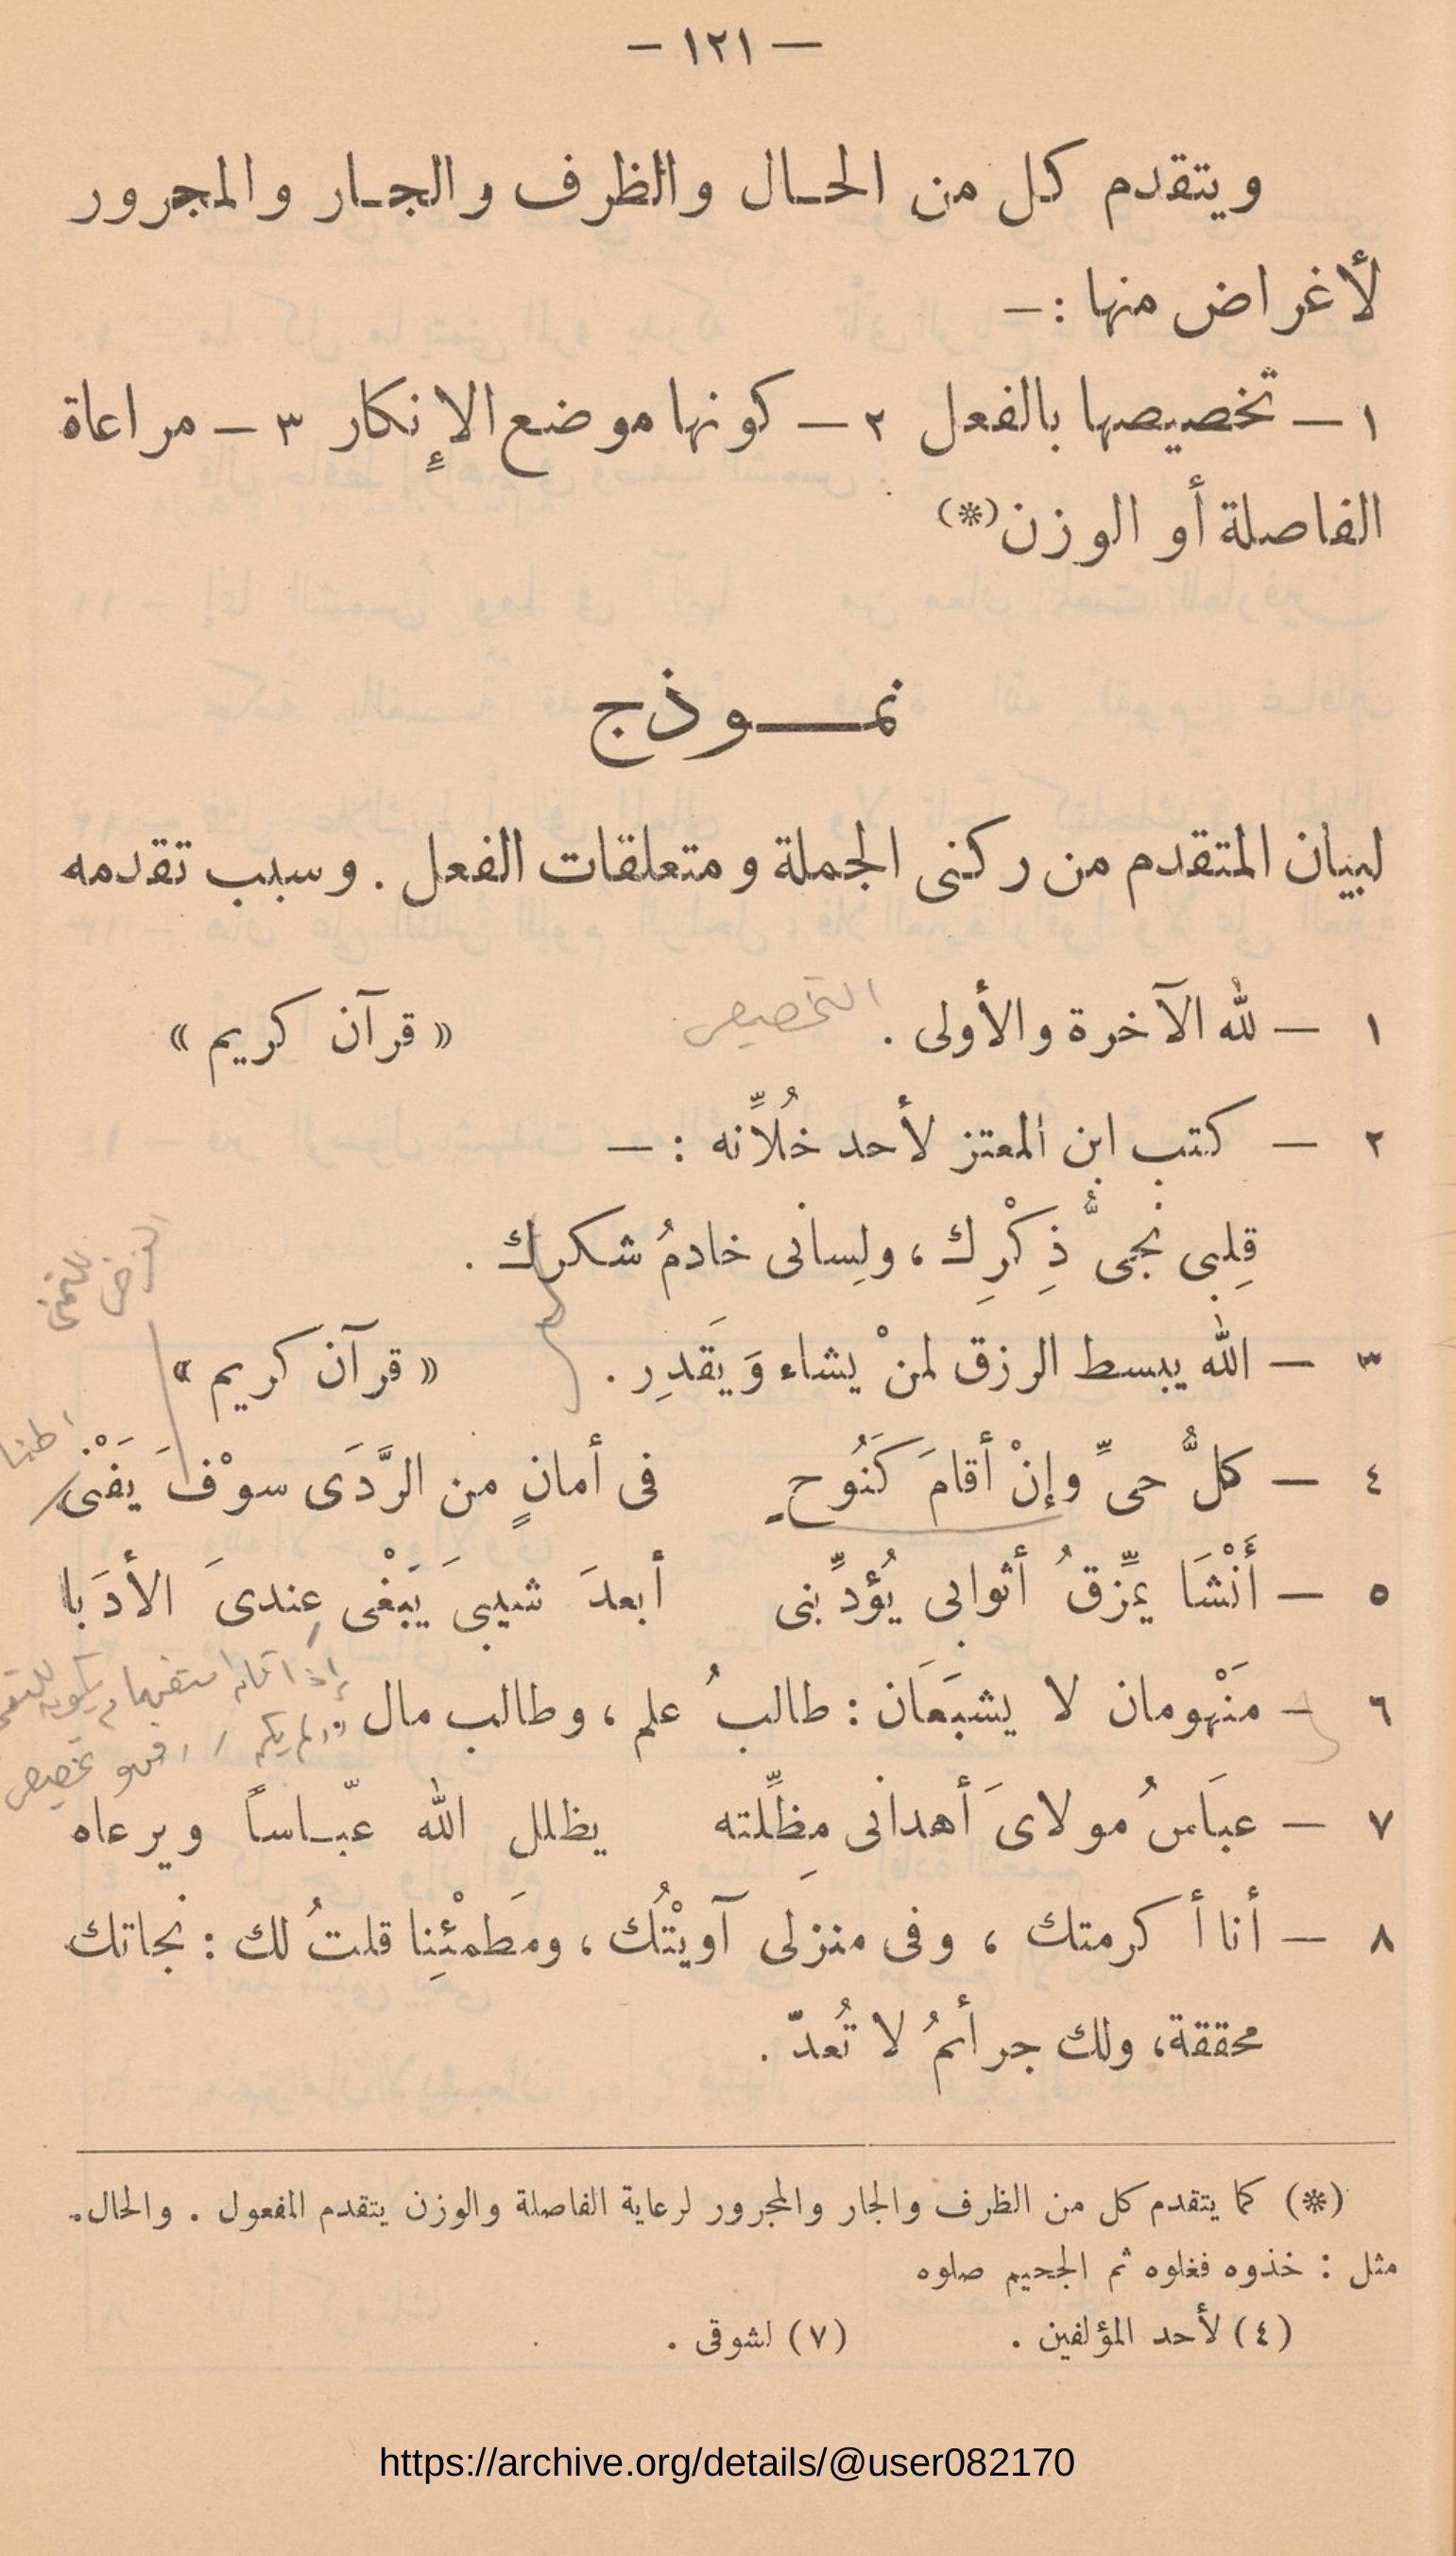 — ١٢١ —
ويتقدم كل من الحـال والظرف والجـار والمجرور
لأغراض منها : —
١ — تخصيصها بالفعل ٢ — كونها موضع الإنكار ٣ — مراعاة
الفاصلة أو الوزن (*)
نمـــوذج
لبيان المتقدم من ركنى الجملة ومتعلقات الفعل . وسبب تقدمه
١ — لله الآخرة والأولى . التخصيص « قرآن كريم »
٢ — كتب ابن المعتز لأحد خُلاِّنه : —
قلِبى نجىُّ ذِكْرِك ، ولِسانى خادمُ شكرك .
٣ — الله يبسط الرزق لمنْ يشاء وَيَقدِر . « قرآن كريم »
٤ — كلُّ حىِّ وإنْ أقامَ كَنَُوح فى أمانٍ من الرَّدَى سوْفَ يَفْنَى
٥ — أَنْشَا يمِّزقُ أثوابى يُؤدِّبنى أبعدَ شيبىَ يَبَغْى عِندىَ الأدَبا
٦ — مَنْهومان لا يشبَعَان : طالبُ علم ، وطالب مال
٧ — عبَاسُ مولاىَ أهدانى مِظلِّته يظلل الله عبّـاساً ويرعاه
٨ — أنا أكرمتك ، وفى منزلى آويْتُك ، ومَطمْئِنا قلتُ لك : نجاتك
محققة، ولك جرأئمُ لا تُعدّ .
(*) كما يتقدم كل من الظرف والجار والمجرور لرعاية الفاصلة والوزن يتقدم المفعول . والحال.
مثل : خذوه فغلوه ثم الجحيم صلوه
(٤) لأحد المؤلفين . (٧) لشوقى .
https://archive.org/details/@user082170